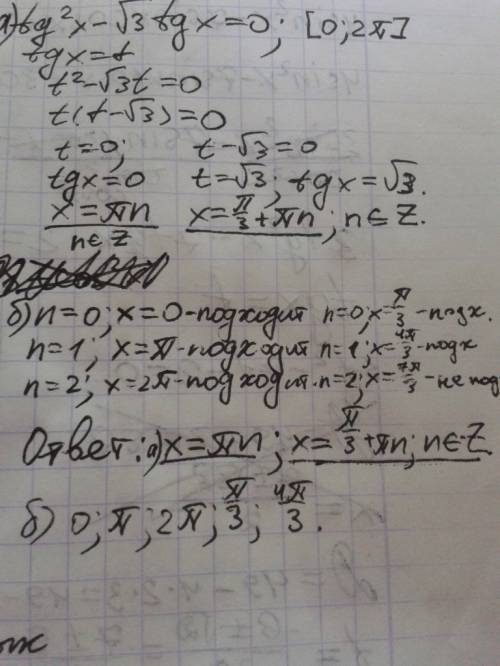 а) tg²x-√3 tgx=0; [0;2π]
tgx=t
t²-√3t=0
t(t-√3)=0
t=0; t-√3=0
tgx=0 t=√3; tgx=√3.
x=πn x=π/3+πn; n∈Z.
n∈Z
б) n=0; x=0-подходит n=0; x=π/3-подх.
n=1; x=π-подходит n=1; x=4π/3-подх
n=2; x=2π-подходит. n=2; x=7π/3-не под
Ответ: а) x=πn; x=π/3+πn; n∈Z
б) 0; π; 2π; π/3; 4π/3.